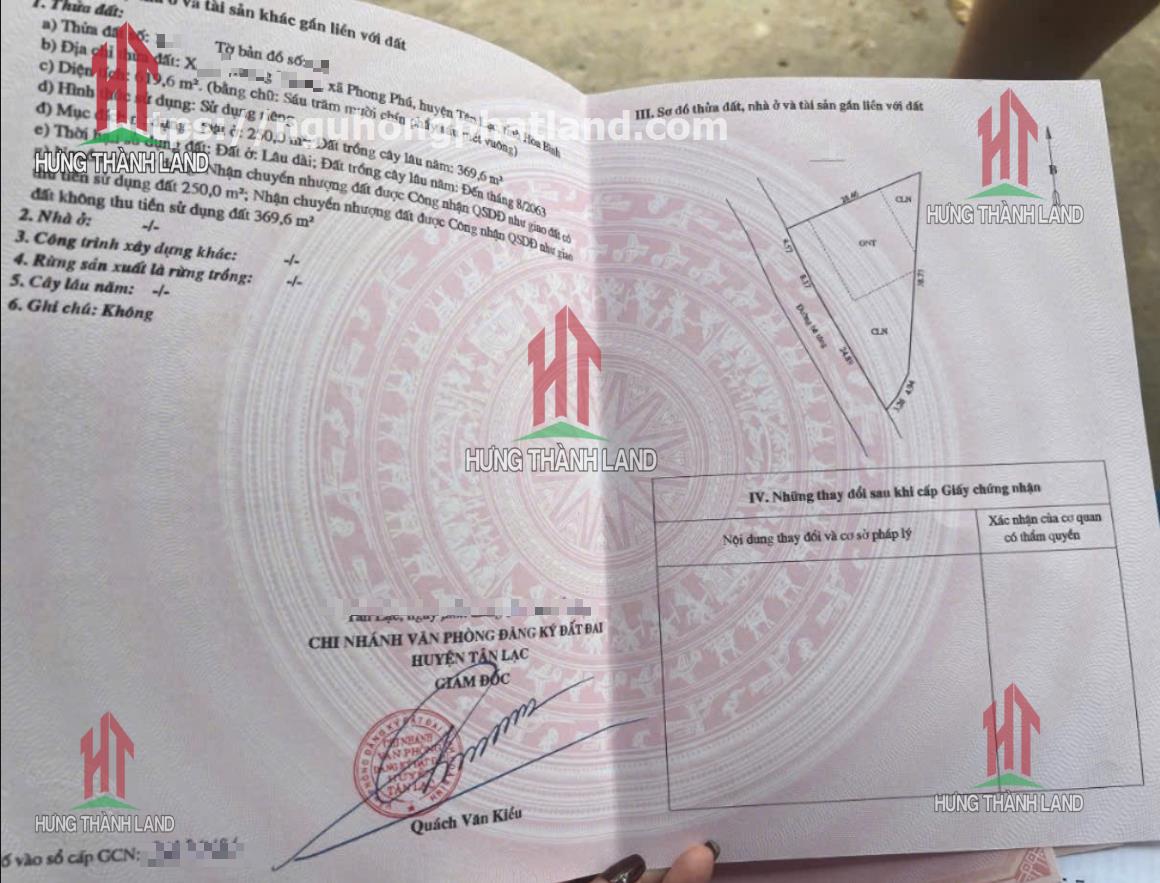 ở và tài sản khác gắn liền với đất
1. Thửa đất:
a) Thửa đất số:
Tờ bản đồ số:
b) Địa chỉ thửa đất: X
xã Phong Phú, huyện Tân Hòa Bình
c) Diện tích: 619,6 m². (bằng chữ: Sáu trăm mười chín phẩy sáu mét vuông)
d) Hình thức sử dụng: Sử dụng riêng
đ) Mục ở: 250,0 m²; Đất trồng cây lâu năm: 369,6 m²
e) Thời hạn sử dụng đất: Đất ở: Lâu dài; Đất trồng cây lâu năm: Đến tháng 8/2063
Nhận chuyển nhượng đất được Công nhận QSDĐ như giao đất có
thu tiền sử dụng đất 250,0 m²; Nhận chuyển nhượng đất được Công nhận QSDĐ như giao
đất không thu tiền sử dụng đất 369,6 m²
2. Nhà ở: -/-
3. Công trình xây dựng khác: -/-
4. Rừng sản xuất là rừng trồng: -/-
5. Cây lâu năm: -/-
6. Ghi chú: Không
CHI NHÁNH VĂN PHÒNG ĐĂNG KÝ ĐẤT ĐAI
HUYỆN TÂN LẠC
GIÁM ĐỐC
CHI NHÁNH
VĂN PHÒNG
ĐĂNG KÝ ĐẤT ĐAI
HUYỆN
TÂN LẠC
Quách Văn Kiều
số vào sổ cấp GCN:
III. Sơ đồ thửa đất, nhà ở và tài sản gắn liền với đất
B
CLN
ONT
4.57
8.37
CLN
Đường bê tông
24.89
4.94
3.26
IV. Những thay đổi sau khi cấp Giấy chứng nhận
Nội dung thay đổi và cơ sở pháp lý
Xác nhận của cơ quan
có thẩm quyền
https://nguhongphatland.com
HƯNG THÀNH LAND
HƯNG THÀNH LAND
HƯNG THÀNH LAND
HƯNG THÀNH LAND
HƯNG THÀNH LAND